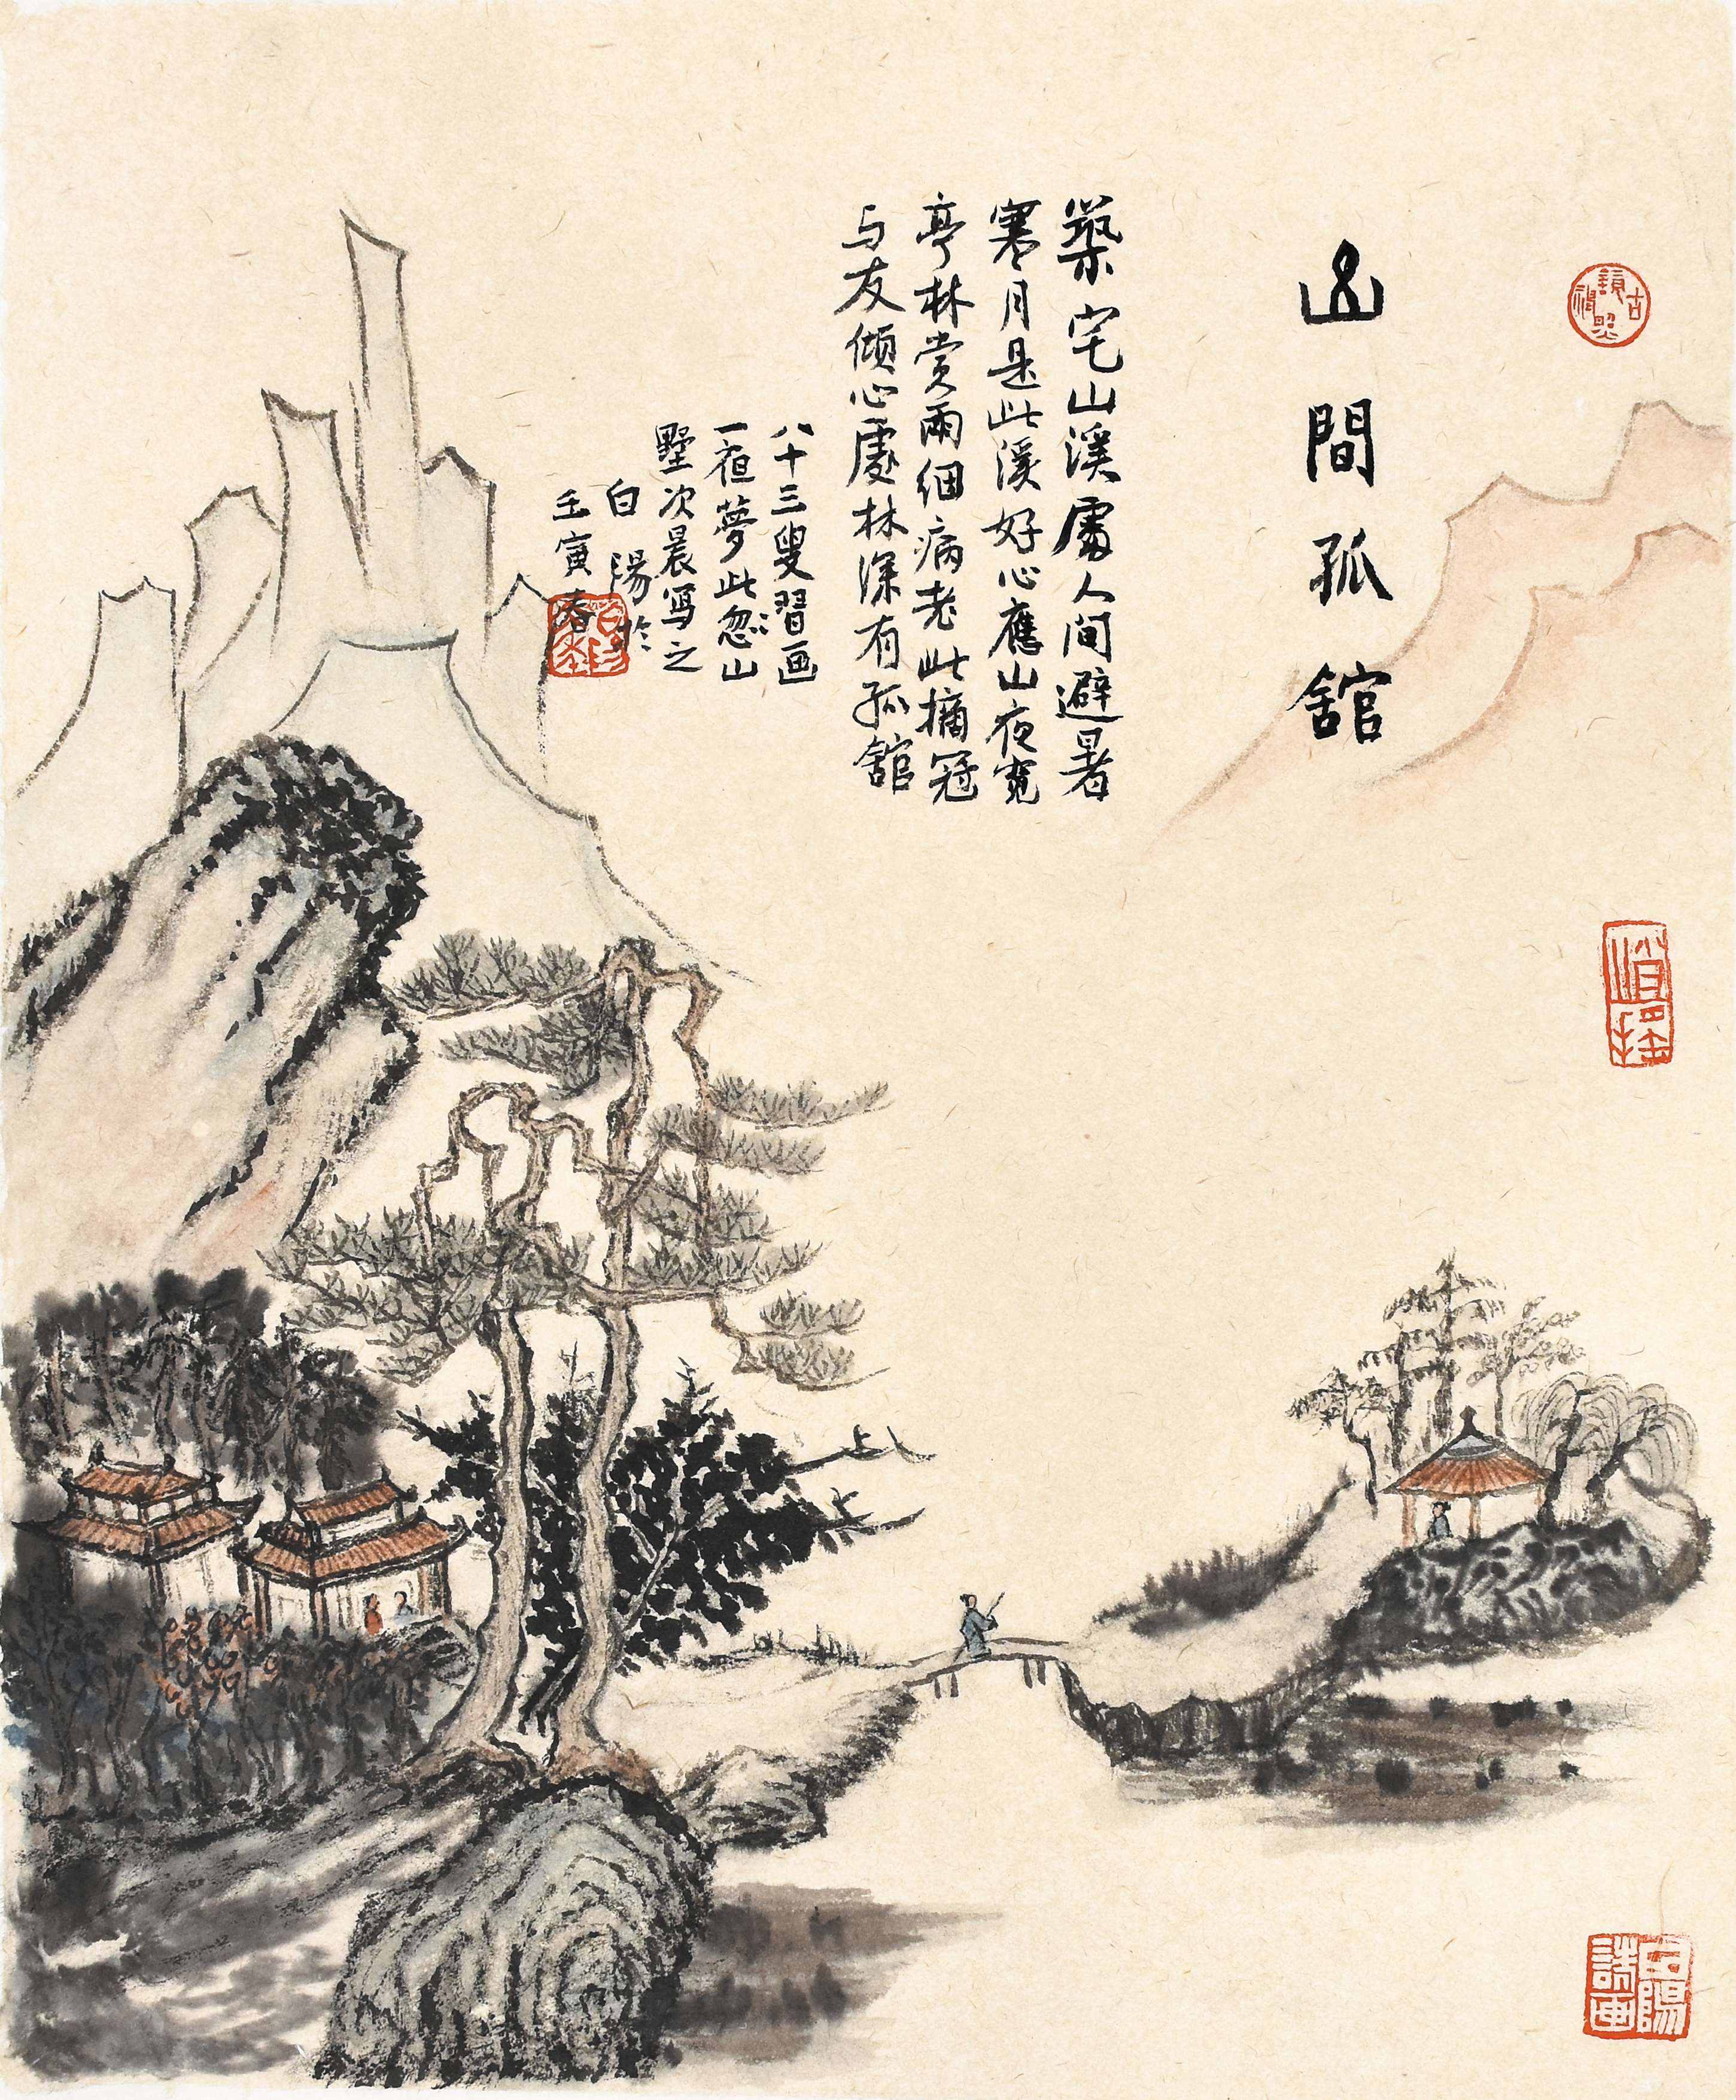 山間孤舘
築宅山溪處人间避暑
寒月是此溪好心應山夜寬
亭林赏雨细病老此摘冠
与友倾心處林深有孤舘
八十三叟習画
一宿夢此忽山
墅次晨寫之
白陽於
壬寅春
白陽
詩画